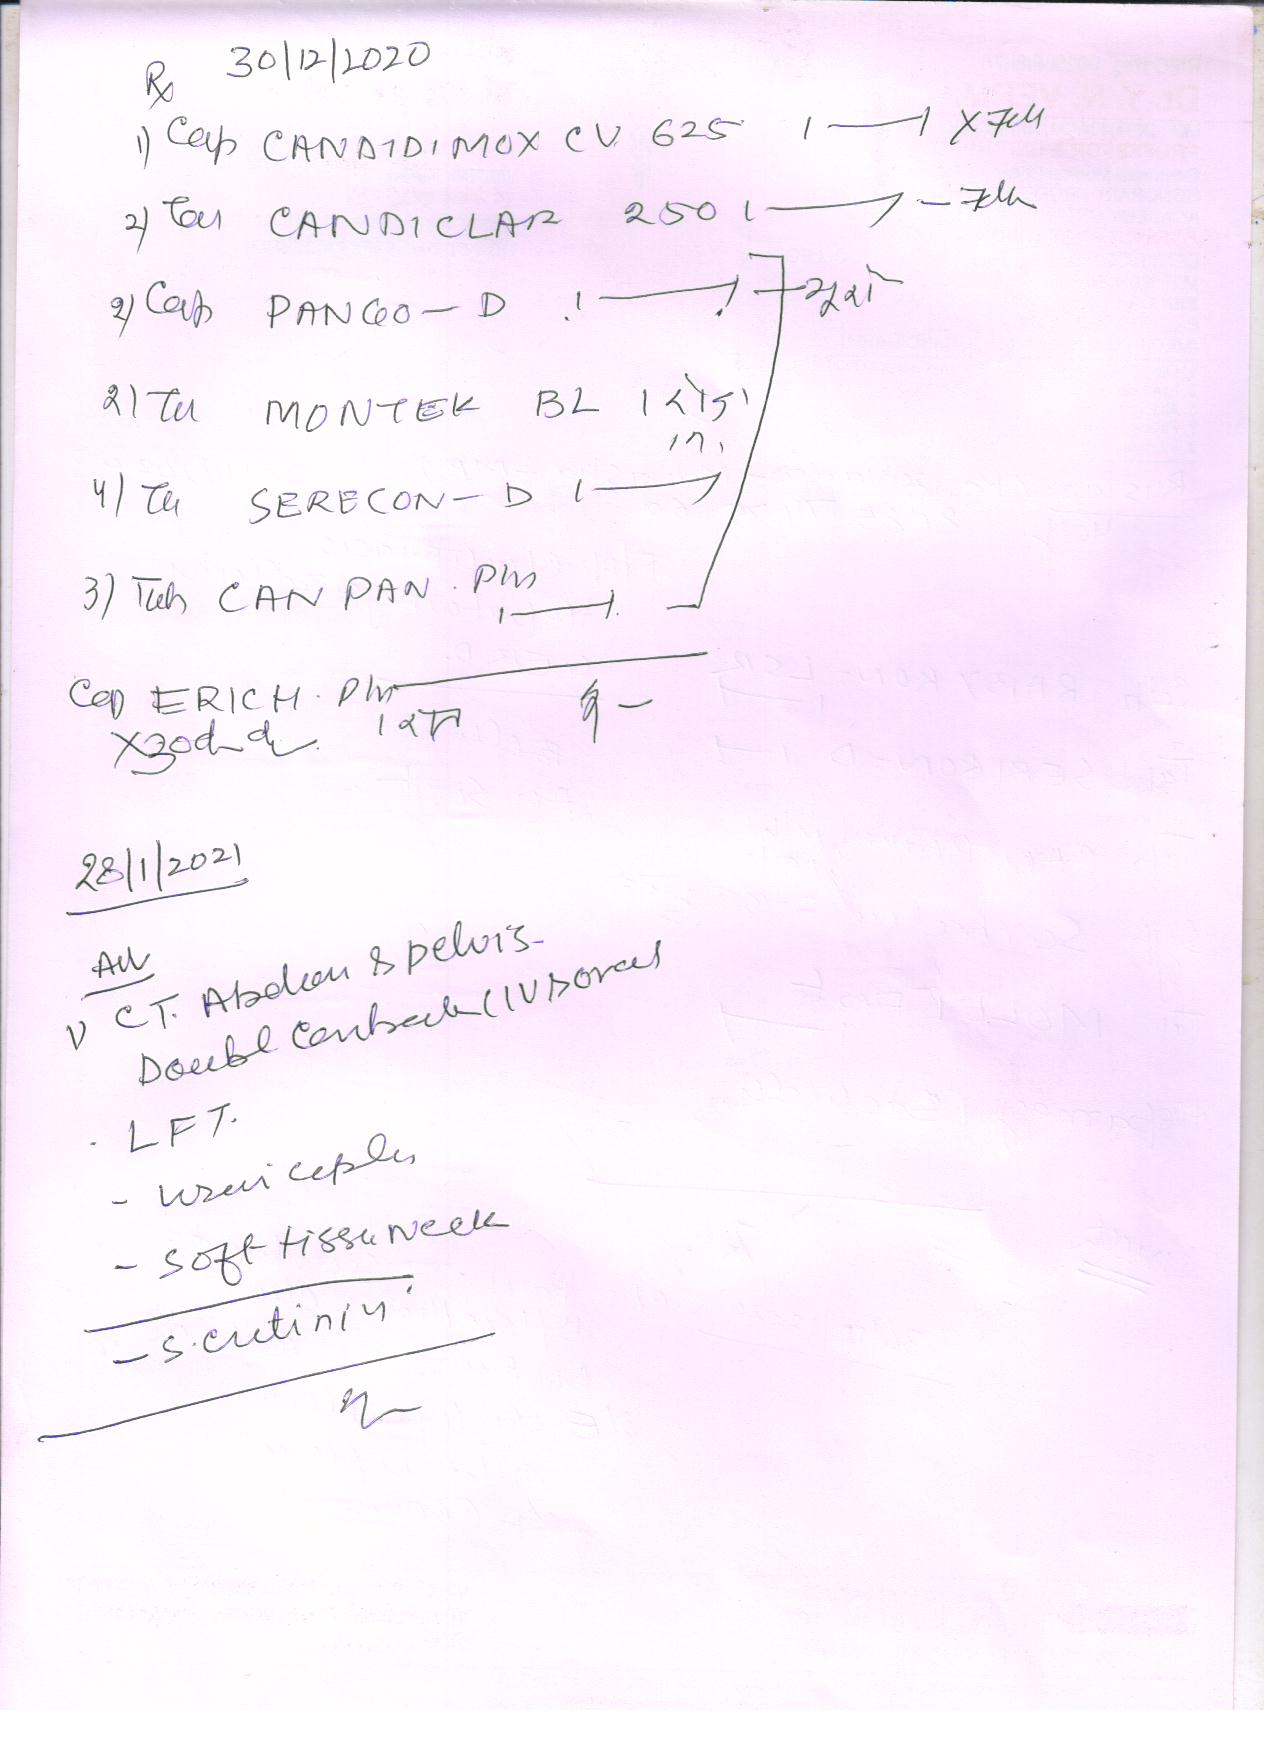 Rx 30/12/2020
1) Cap CANDIDIMOX CV 625 1——1 X7
2) Tab CANDICLAR 250 1——1 – 7
2) Cap PANGO – D 1——1
2) Tab MONTEK BL 1
4) Tab SERECON – D 1——1
3) Tab CAN PAN. Plus
1——1
Cap ERICH. Plus
X30
28/1/2021
Adv
1) C.T. Abdomen & pelvis
Double Contrast (IV & oral
. LFT.
– Urine
– Soft tissue Neck
– S. cretinin